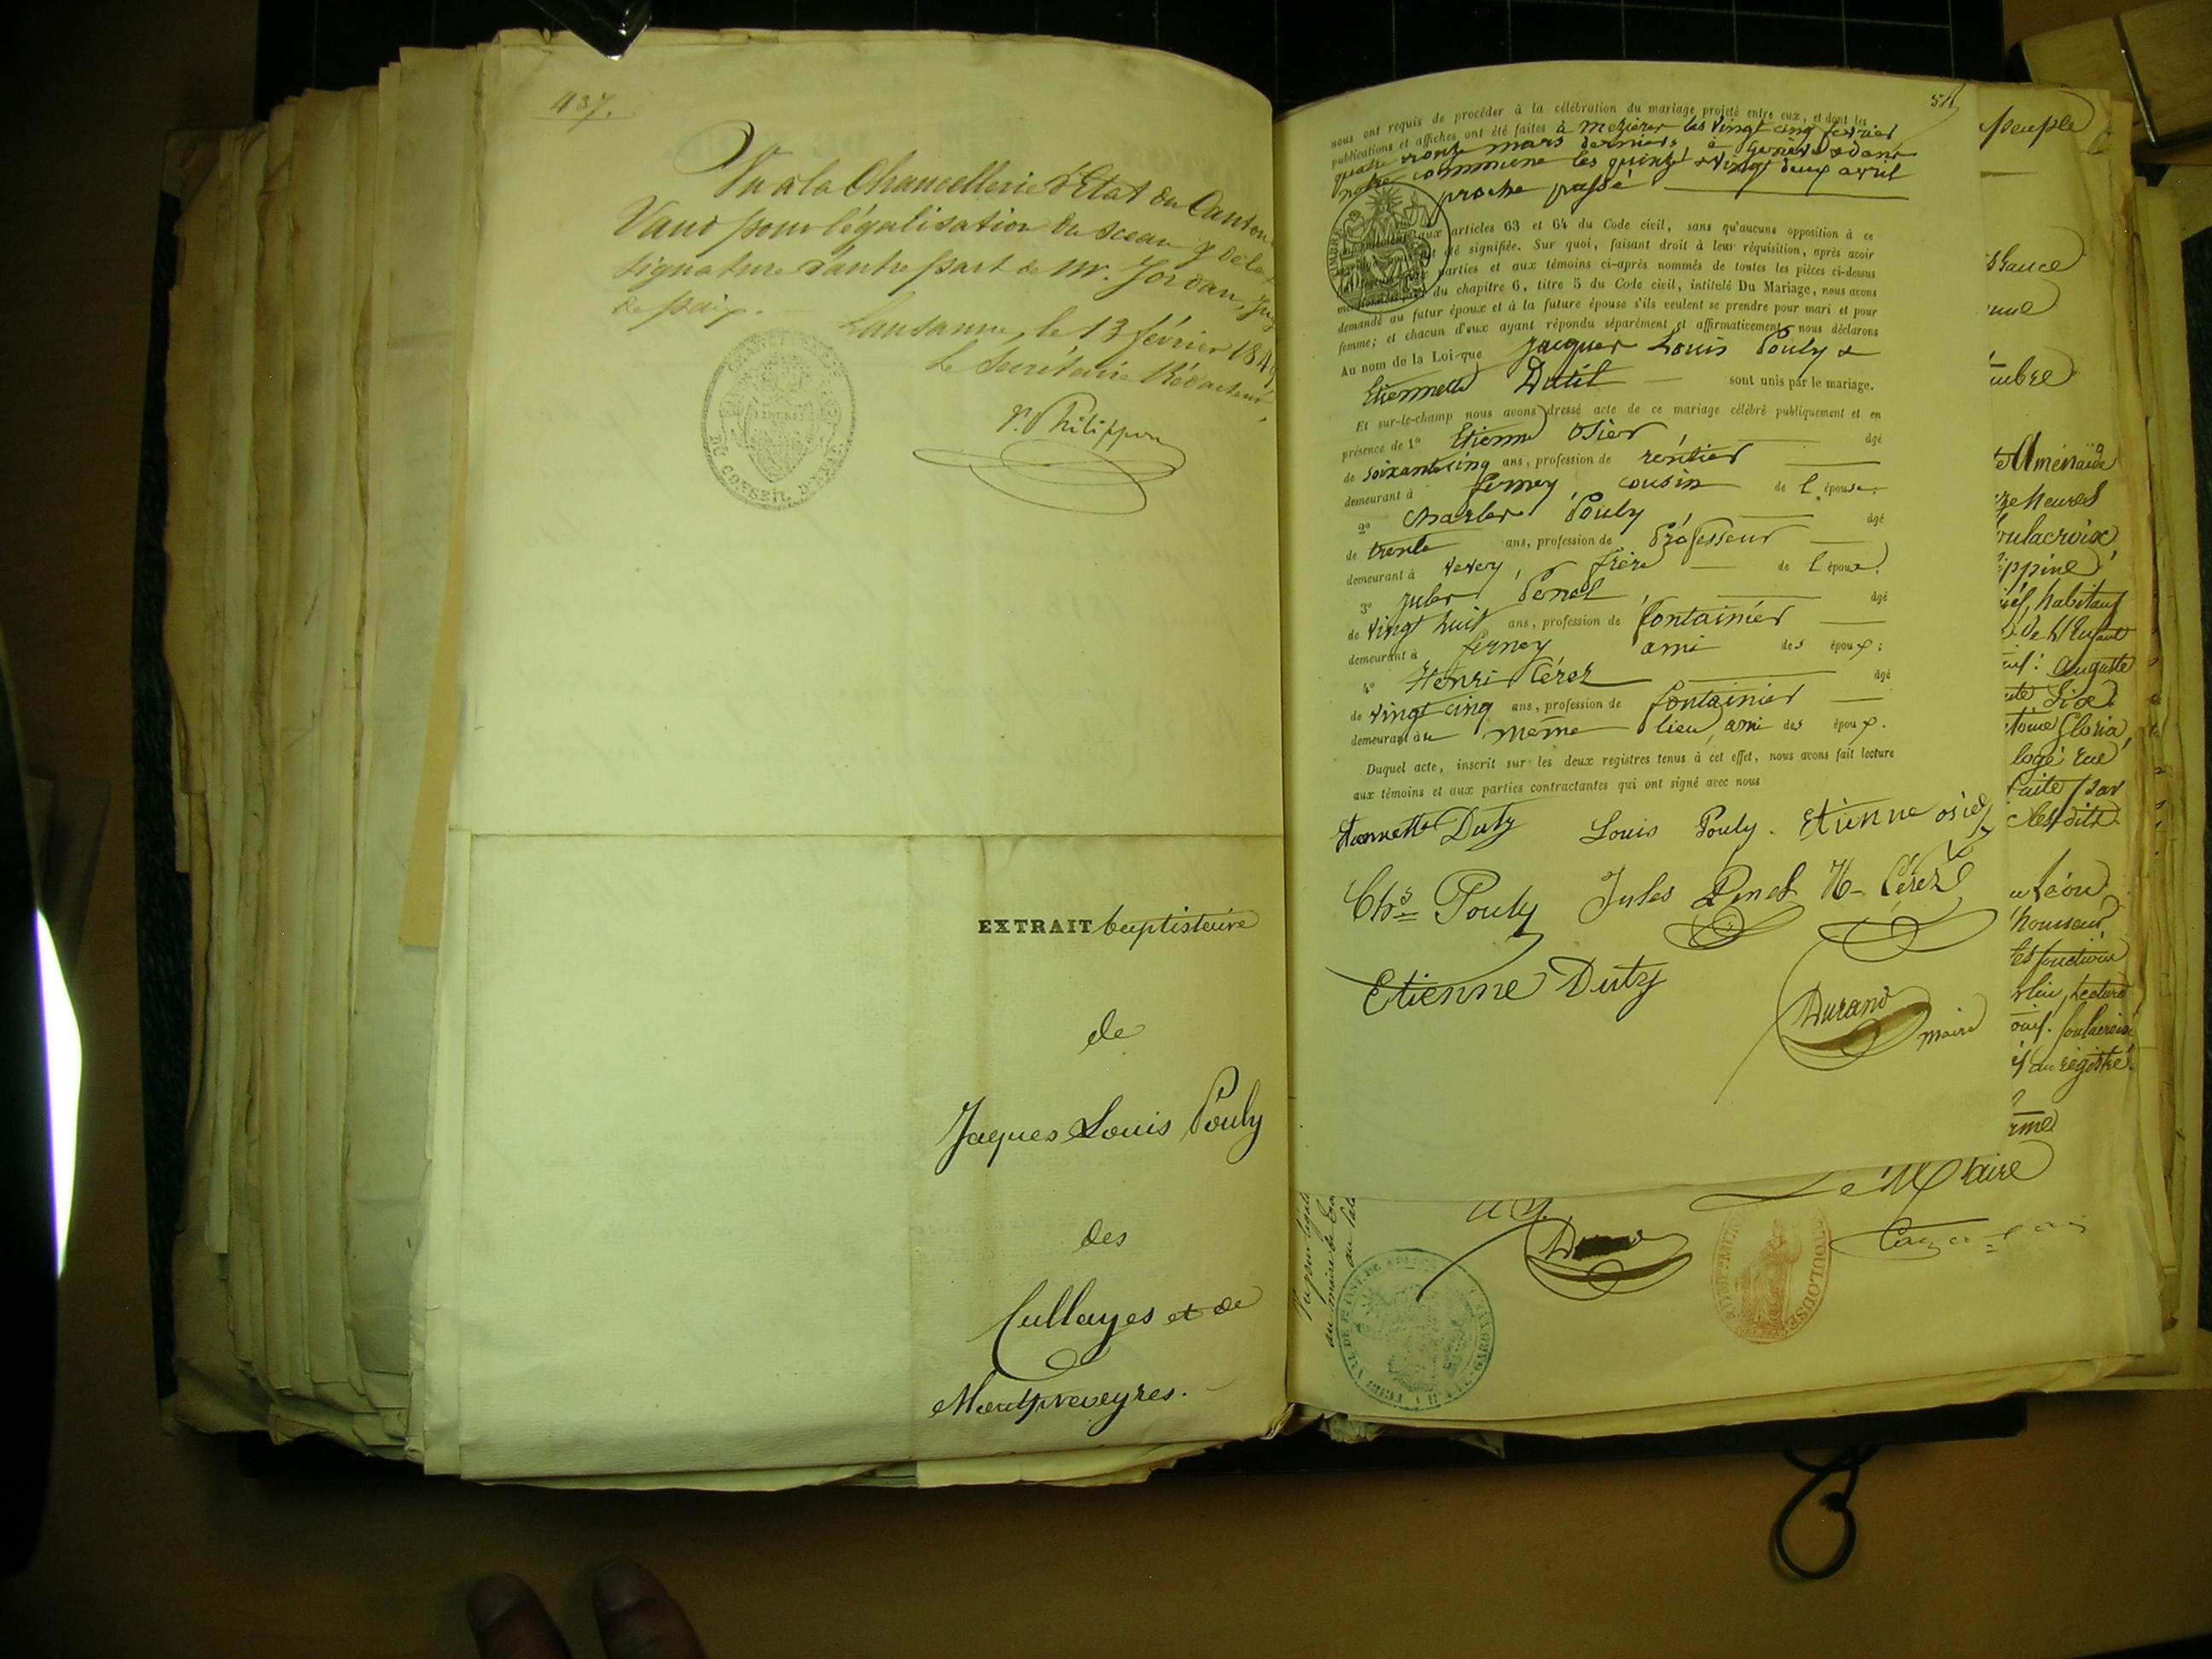 437.
Vu à la Chancellerie d'Etat du Canton
Vaud pour légalisation du sceau & de la
signature d'autre part de Mr. Jordan, Jug
de paix.
Lausanne, le 13 février 184
Le Secrétaire Rédacteur,
Philippon
DU CONSEIL D'ETAT
EXTRAIT baptistaire
de
Jaques Louis Pouly
des
Cullayes et de
Montpreveyres.
nous ont requis de procéder à la célébration du mariage projeté entre eux, et dont les
publications et affiches ont été faites à Mezières les vingt cinq février
quatre onze mars derniers à Genève & dans
notre commune les quinze & vingt deux avril
proche passé
TIMBRE
aux articles 63 et 64 du Code civil, sans qu'aucune opposition à ce
été signifiée. Sur quoi, faisant droit à leur réquisition, après avoir
parties et aux témoins ci-après nommés de toutes les pièces ci-dessus
du chapitre 6, titre 5 du Code civil, intitulé Du Mariage, nous avons
demandé au futur époux et à la future épouse s'ils veulent se prendre pour mari et pour
femme; et chacun d'eux ayant répondu séparément et affirmativement, nous déclarons
Au nom de la Loi que Jacques Louis Pouly &
Etiennette Dutil sont unis par le mariage.
Et sur-le-champ nous avons dressé acte de ce mariage célébré publiquement et en
présence de 1º Etienne Osier, âgé
de soixante cinq ans, profession de rentier
demeurant à ferney, cousin de l'épouse;
2º Charles Pouly, âgé
de trente ans, profession de Professeur
demeurant à vevey, frère de l'époux;
3º Jules Penel, âgé
de vingt huit ans, profession de fontainier
demeurant à ferney ami des époux;
4º Henri Cérez âgé
de vingt cinq ans, profession de fontainier
demeurant au même lieu, ami des époux.
Duquel acte, inscrit sur les deux registres tenus à cet effet, nous avons fait lecture
aux témoins et aux parties contractantes qui ont signé avec nous
Etiennette Duty Louis Pouly. Etienne osier
Chs Pouly Jules Penel H. Cérez
Etienne Duty
Durand
maire
peuple
Aménaïde
heures
oulacroix
ippine
habitant
auguste
Gloria
logé rue
par
Léon
fonctions
registre
Le Maire
TOULOUSE